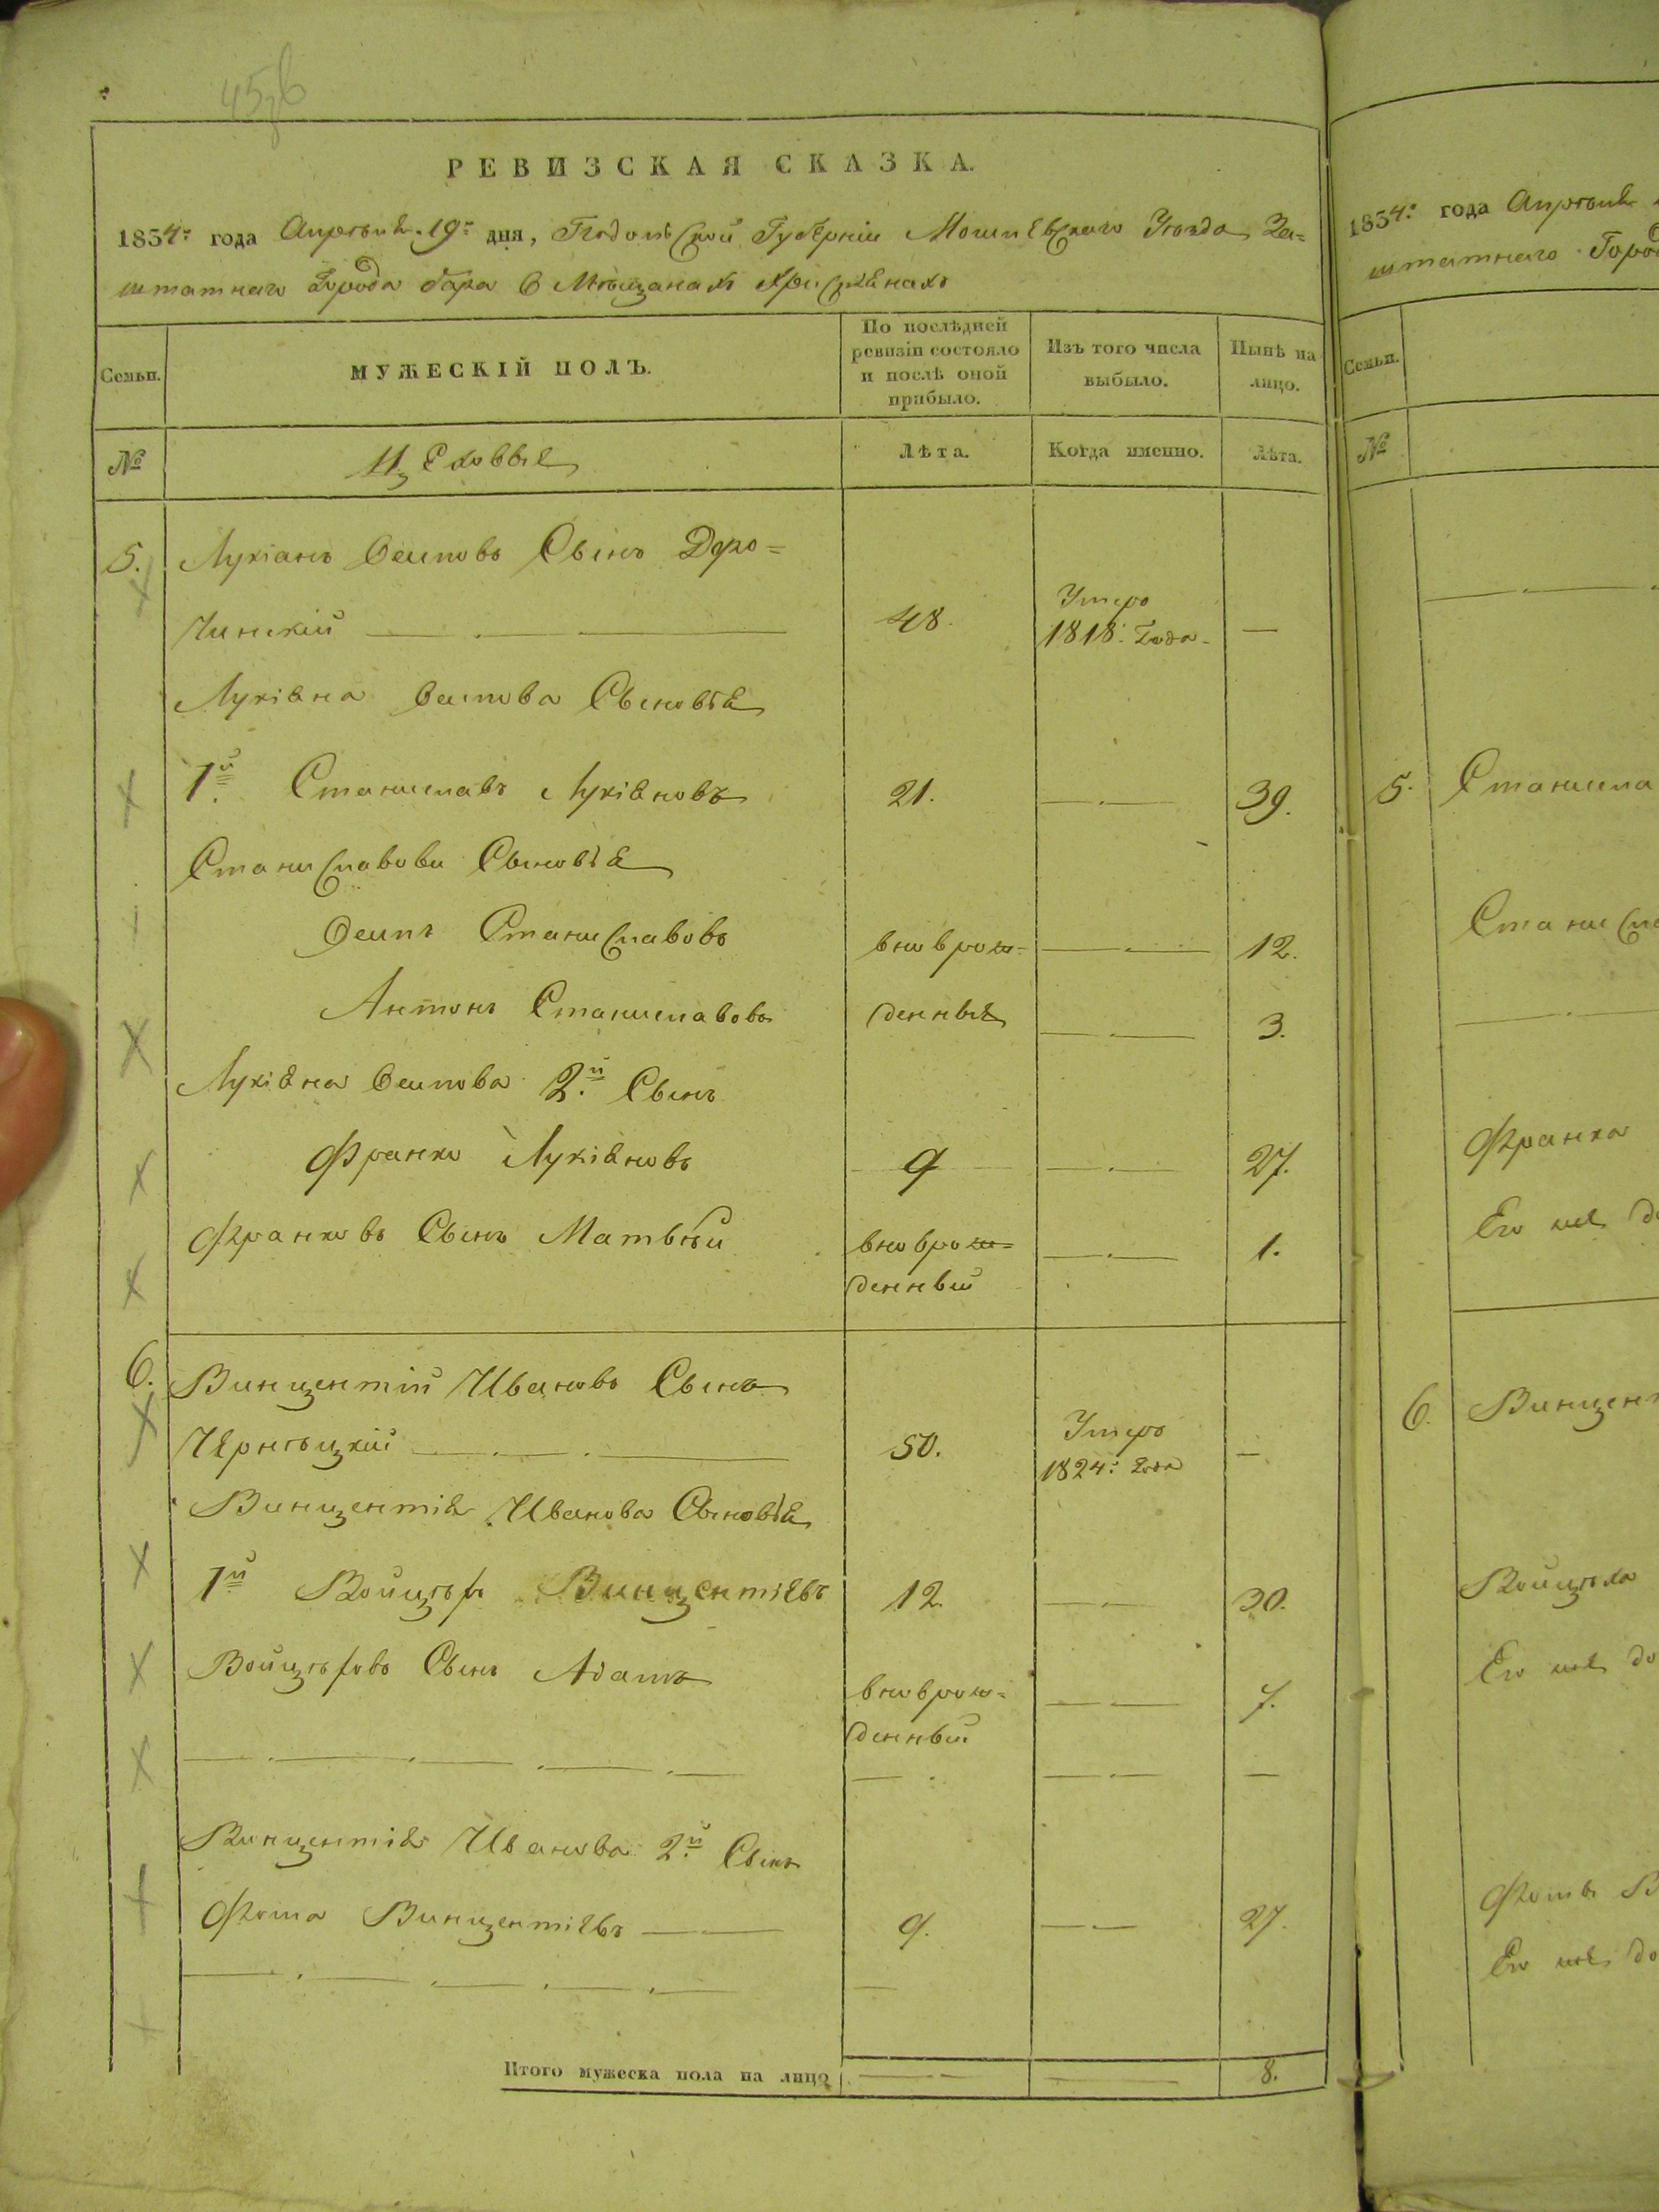 45,6
РЕВИЗСКАЯ СКАЗКА.
1834: года Апреля 19: дня, Подольской Губерніи Могилевского Уезда За=
штатнаго Города Бара в Мѣщанахъ Христіянахъ
Семьи.
МУЖЕСКІЙ ПОЛЪ.
По послѣдней
ревизіи состояло
и послѣ оной
прибыло.
Изъ того числа
выбыло.
Нынѣ на
лицо.
№
Лѣта.
Когда именно.
Лѣта.
5. Лукіанъ Осиповъ Сынъ Доро=
чинскій 48. Умеръ
1818: Года
Лукіяна Осипова Сыновья
1й Станиславъ Лукіяновъ 21. 39.
Станиславови Сыновья
Осипъ Станиславовъ вновь рож= 12.
Антонъ Станиславовъ денные 3.
Лукіяна Осипова 2й Сынъ
Франко Лукіяновъ 9 27.
Франковъ Сынъ Матвѣй вновь рож= 1.
денный
6. Винцентій Ивановъ Сынъ
Чернѣцкій 50. Умеръ
1824: Года
Винцентія Иванова Сыновья
1й Войцѣхъ Винцентіевъ 12. 30.
Войцѣховъ Сынъ Адамъ вновь рож= 7.
денный
Винцентія Иванова 2й Сынъ
Фома Винцентіевъ 9. 27.
Итого мужеска пола на лицо 8.
1834: года Апреля
штатнаго Город
Семьи.
№
5. Станисла
Станисла
Франка
Его же до
6. Винцент
Войцѣха
Его же до
Фомы В
Его же до